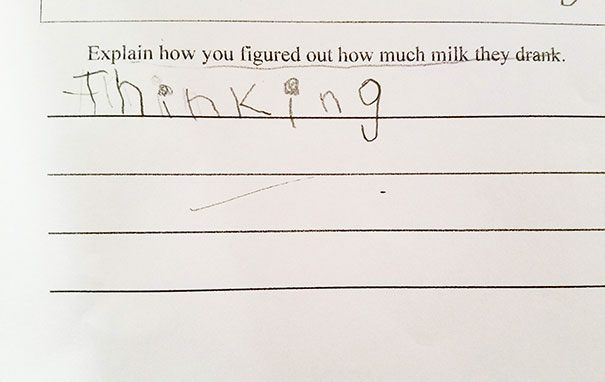 Explain how you figured out how much milk they drank.
Thinking